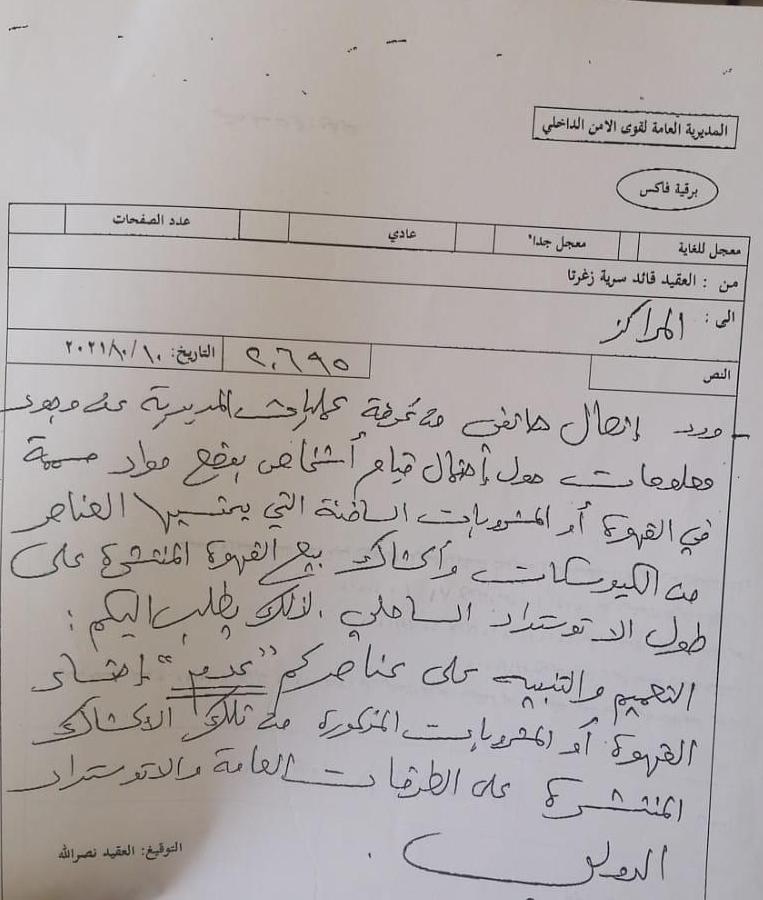 المديرية العامة لقوى الامن الداخلي
برقية فاكس
معجل للغاية معجل جدا" عادي عدد الصفحات
من : العقيد قائد سرية زغرتا
الى: المراكز
النص ٢٠٦٩٥ التاريخ: ٢٠٢١/١٠/١٠
- ورد إتصال هاتفي من غرفة عمليات المديرية عن وجود
معلومات حول إحتمال قيام أشخاص بوضع مواد مسممة
في القهوة أو المشروبات الساخنة التي يحتسيها العناصر
من الكيوسكات وأكشاك بيع القهوة المنتشرة على
طول الاوتوستراد الساحلي ، لذلك يطلب اليكم :
التعميم والتنبيه على عناصركم "عدم" إحتساء
القهوة أو المشروبات المذكورة من تلك الأكشاك
المنتشرة على الطرقات العامة والاتوستراد
الدولي .
التوقيع: العقيد نصرالله